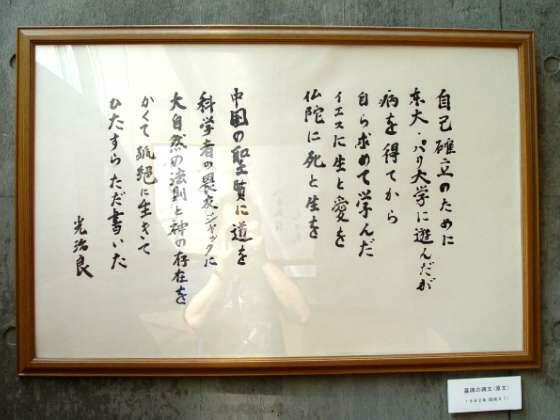 自己確立のために
東大・パリ大学に遊んだが
病を得てから
自ら求めて学んだ
イエスに生と愛を
仏陀に死と生を
中国の聖賢に道を
科学者の畏友ジャックに
大自然の法則と神の存在を
かくて孤絶に生きて
ひたすらただ書いた
光治良
墓碑の碑文(原文)